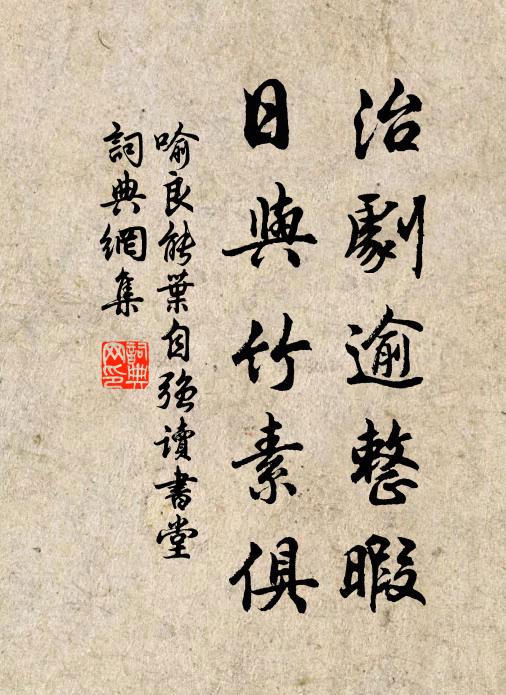 治劇逾整暇
日與竹素俱
喻良能葉自強讀書堂
詞典網集
詞典网印